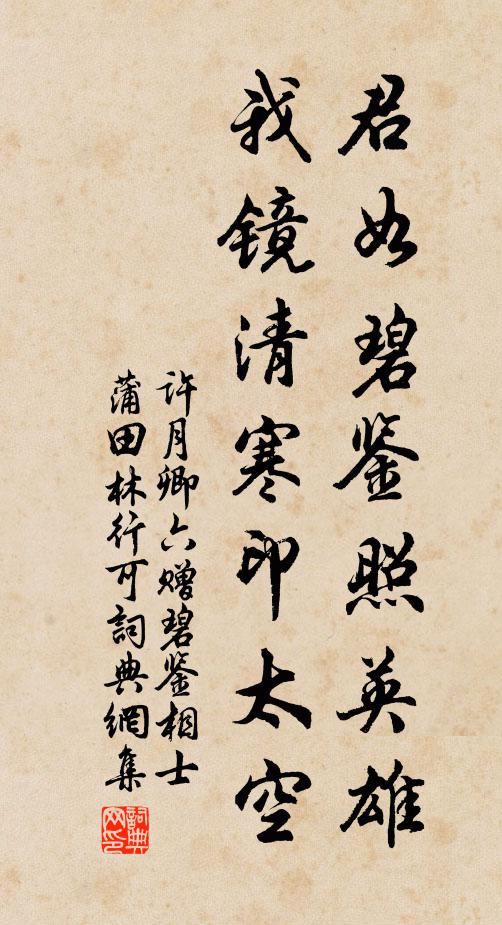 君如碧鉴照英雄
我镜清寒印太空
许月卿六赠碧鉴相士
蒲田林行可詞典網集
詞典网印